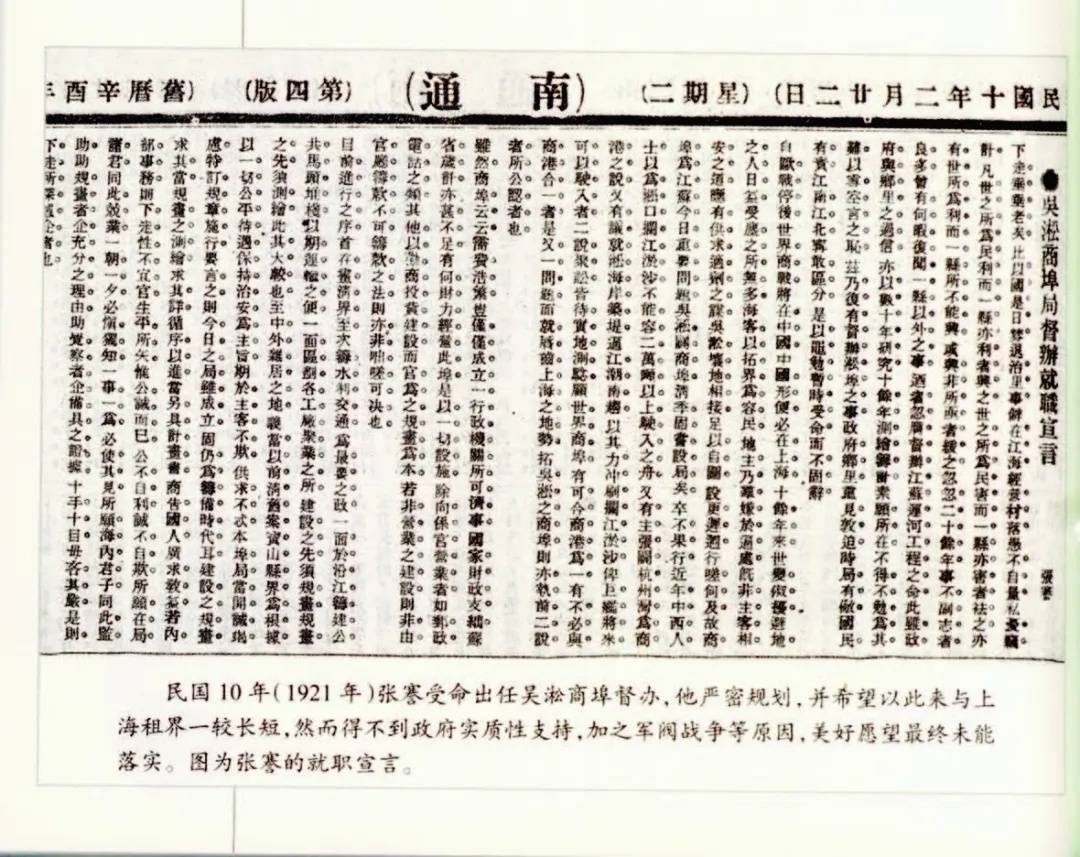 民國十年二月廿二日（星期二）（南通）（第四版）（舊曆辛酉年
吳淞商埠局督辦就職宣言 張謇
下走垂垂老矣比以國是日棼退治里事僻在江海經營村落愚不自量私憂竊
計凡世之所爲民利而一縣亦利者興之世之所爲民害而一縣亦害者袪之亦
有世所爲利而一縣所不能興或興非所亟者援之忽忽二十餘年事不副志者
良多曾有何暇復聞一縣以外之事迺者忽膺督辦江蘇運河工程之命此雖政
府與鄉里之過信亦以數十年研究十餘年測繪籌畫素願所在不得不勉爲其
難以雪空言之恥茲乃復有督辦淞埠之事政府鄉里還見敦迫時局有儆國民
有責江南江北寧敢區分是以黽勉暫時受命而不固辭
自歐戰停後世界商戰將在中國中國形便必在上海十餘年來世變俶擾避地
之人日益受廛之所無多海客以拓界爲容民地主乃嫌嫉於逼處旣非主客相
安之道應有供求適劑之謀吳淞壤地相接足以自闢設更遲迴行噬何及故商
埠爲江蘇今日重要問題吳淞闢商埠清季固嘗設局矣卒不果行近年中西人
士以爲淞口攔江淤沙不能容二萬噸以上駛入之舟又有主張闢杭州灣爲商
港之說又有議就淞海岸築堤逼江潮南趨以其力冲刷攔江淤沙俾上將來
可以駛入者二說聚訟皆待實地測驗顧世界商埠有可合商港爲一有不必與
商港合一者是又一問題而就唇齒上海之地勢拓吳淞之商埠則亦執前二說
者所公認者也
雖然商埠云云需費浩繁豈僅僅成立一行政機關所可濟事國家財政支絀蘇
省歲計亦甚不足有何財力經營此埠是以一切設施除向係官營業者如郵政
電話之類其他以勸商投資建設而官爲之規畫爲本若非營業之建設則非由
官廳籌款不可籌款之法則亦非咄嗟可決也
目前進行之序首在釐清界至次籌水利交通爲最要之政一面於沿江籌建公
共馬頭堆棧以期運輸之便一面區劃各工廠衆業之所建設之先須規畫規畫
之先須測繪此其大較也至中外雜居之地護當以前清舊案寶山縣界爲根據
以一切公平待遇保持治安爲主旨期於主客不欺供求不忒本埠局當開誠竭
慮特訂規章施行要言之則今日之局雖成立固仍爲籌備時代耳建設之規畫
求其當規畫之測繪求其詳循序以進當另具計畫書商告國人廣求敎益若內
部事務則下走性不宜官生平所矢惟公誠而已公不自利誠不自欺所願在局
諸君同此兢業一朝一夕必愼獨知一事一爲必使其見所願海內君子同此監
助助規畫者企充分之理由助覺察者企備具之證據十手十目毋吝其嚴是則
下走所深企者也
民国10年(1921年)张謇受命出任吴淞商埠督办,他严密规划,并希望以此来与上
海租界一较长短,然而得不到政府实质性支持,加之军阀战争等原因,美好愿望最终未能
落实。图为张謇的就职宣言。